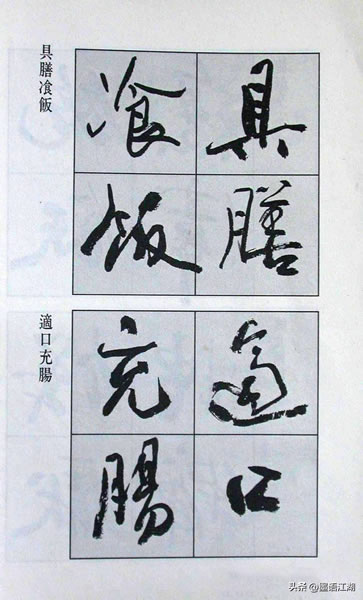 具膳
飡飯
具膳飡飯
適口
充腸
適口充腸
头条 @墨语江湖